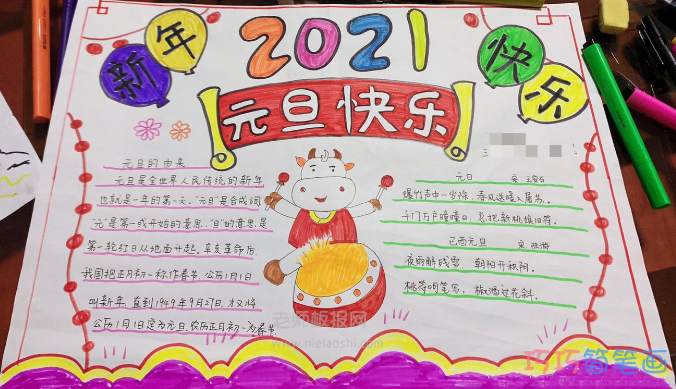 2021
新年
快乐
元旦快乐
元旦的由来
元旦是全世界人民传统的新年
也就是一年的第一天,"元旦"是合成词
"元"是第一或开始的意思,"旦"的意思是
第一轮红日从地面升起。辛亥革命后
我国把正月初一称作春节,公历1月1日
叫新年,直到1949年9月27日,才又将
公历1月1日定为元旦,农历正月初一为春节
元日 宋
爆竹声中一岁除,春风送暖入屠苏。
千门万户曈曈日,总把新桃换旧符。
己酉元旦 宋
夜雨解残雪,朝阳开积阴。
桃符呵笔写,椒酒过花斜。
老师板报网
www.nielaoshi.com
巧巧简笔画